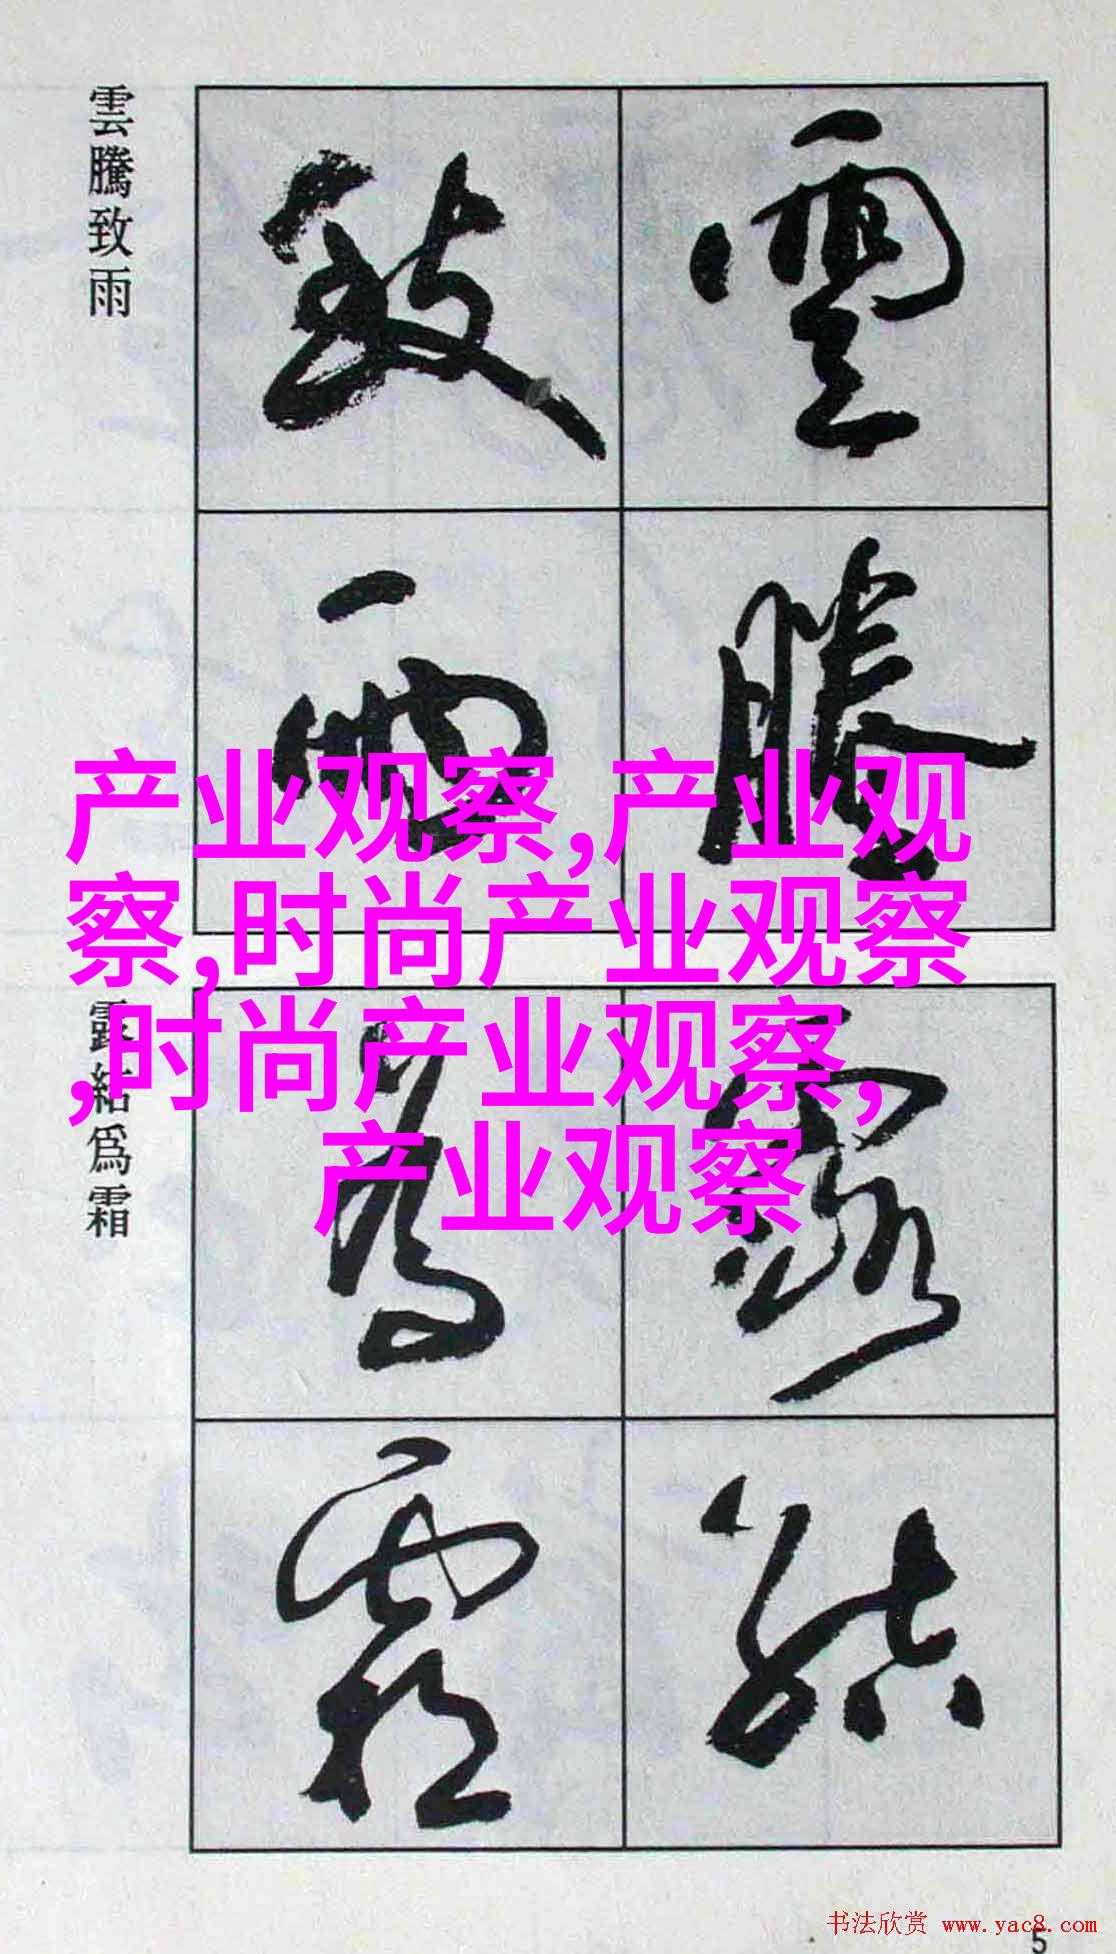 雲騰致雨
雲騰
致雨
產业观察,产业观
察,时尚产业观察
,时尚产业观察,
产业观察
露結爲霜
露結
爲霜
书法欣赏 www.yac8.com
5